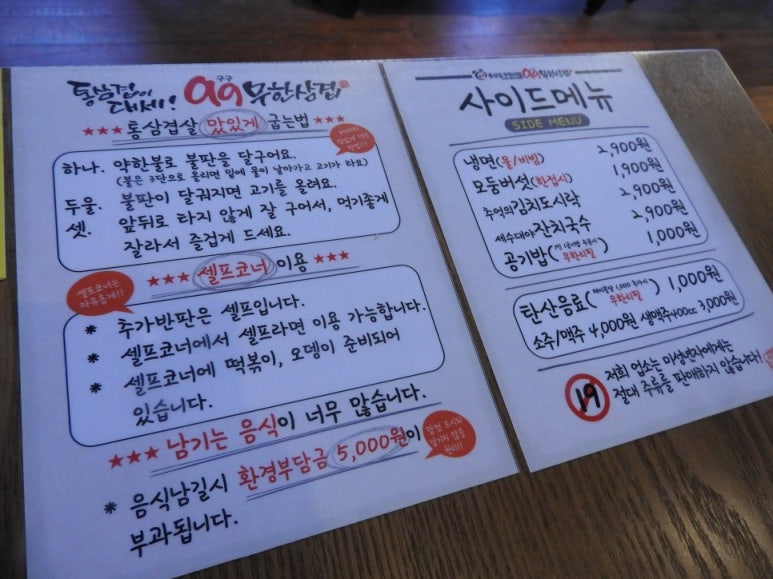 통삼겹이
대세!
구구
99 무한삼겹
★★★ 통삼겹살 맛있게 굽는법 ★★★
하나. 약한불로 불판을 달구어요.
(불은 3단으로 올리면 밑에 물이 날아가고 고기가 타요)
두울. 불판이 달궈지면 고기를 올려요.
셋. 앞뒤로 타지 않게 잘 구어서, 먹기좋게
잘라서 즐겁게 드세요.
★★★ 셀프코너 이용 ★★★
셀프코너는
자유롭게!!
* 추가반판은 셀프입니다.
* 셀프코너에서 셀프라면 이용 가능합니다.
* 셀프코너에 떡볶이, 오뎅이 준비되어
있습니다.
★★★ 남기는 음식이 너무 많습니다.
* 음식남길시 환경부담금 5,000원이
부과됩니다.
99 무한삼겹
사이드메뉴
SIDE MENU
냉면(물/비빔) 2,900원
모둠버섯(한접시) 1,900원
추억의김치도시락 2,900원
세숫대야잔치국수 2,900원
공기밥( 무한리필) 1,000원
탄산음료( 1,000 무한리필) 1,000원
소주/맥주 4,000원 생맥주400cc 3,000원
19
저희 업소는 미성년자에게는
절대 주류를 판매하지 않습니다!